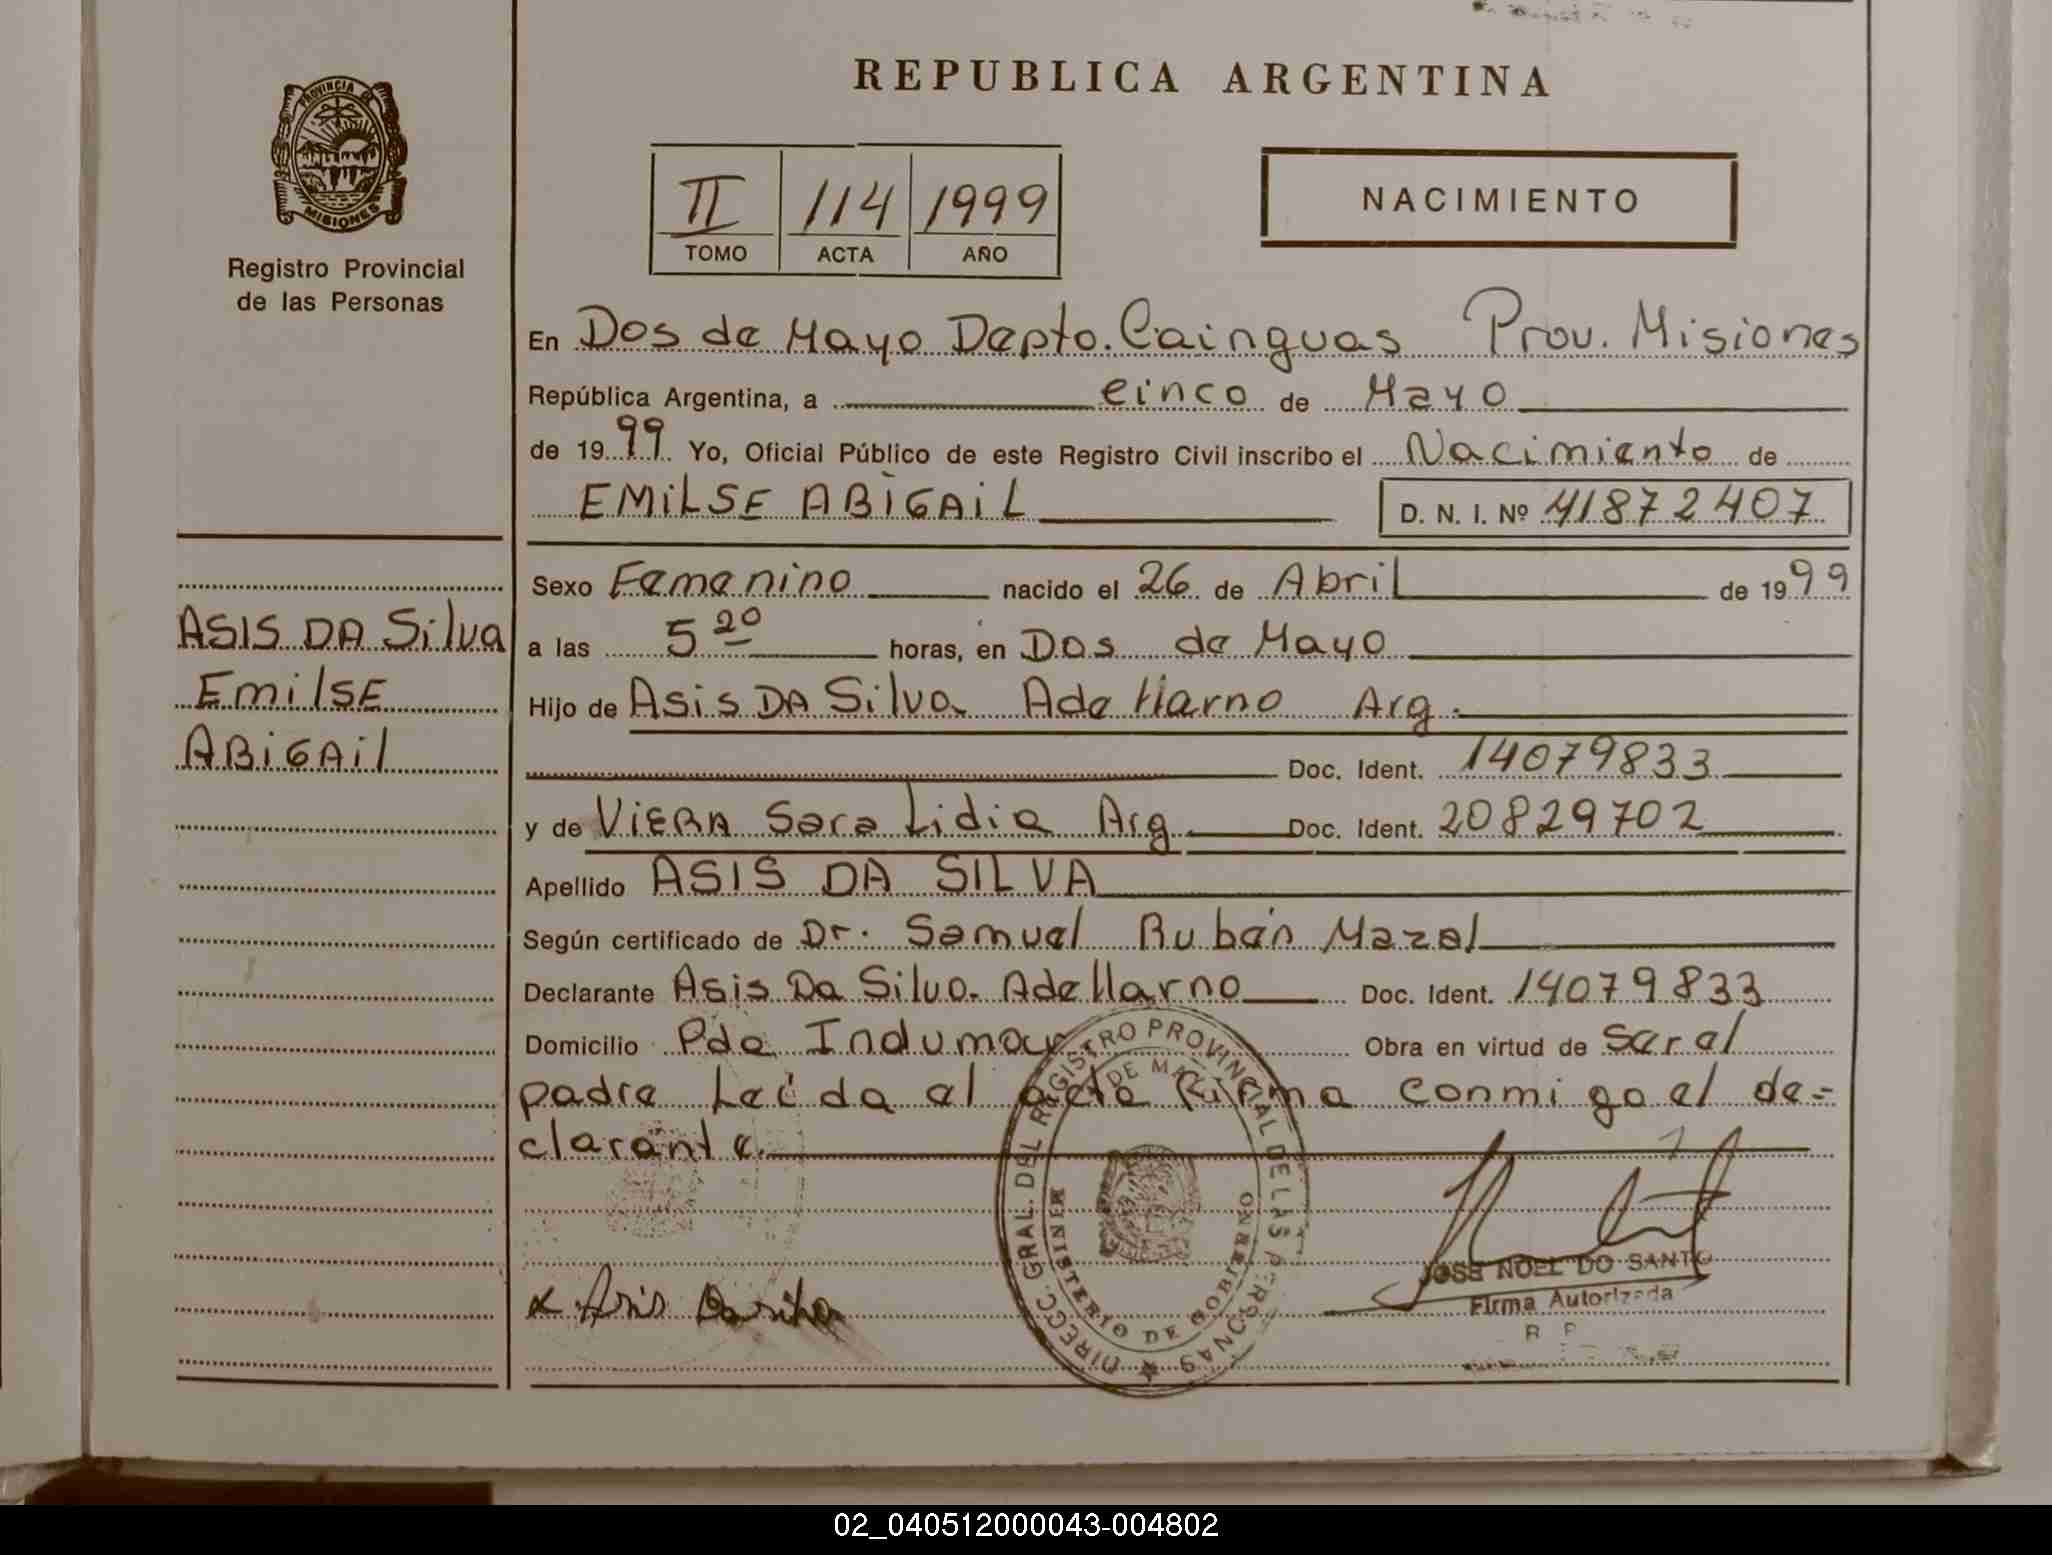 REPUBLICA ARGENTINA
PROVINCIA DE
MISIONES
Registro Provincial
de las Personas
II 114 1999
TOMO ACTA AÑO
NACIMIENTO
En Dos de Mayo Depto. Cainguas Prov. Misiones
República Argentina, a cinco de Mayo
de 1999 Yo, Oficial Público de este Registro Civil inscribo el Nacimiento de
EMILSE ABIGAIL D. N. I. Nº 41872407
Sexo Femenino nacido el 26 de Abril de 1999
a las 5 20 horas, en Dos de Mayo
Hijo de Asis DA Silva Adellarno Arg.
Doc. Ident. 14079833
y de VIERA Sara Lidia Arg. Doc. Ident. 20829702
Apellido ASIS DA SILVA
Según certificado de Dr. Samuel Rubén Mazal
Declarante Asis Da Silva Adellarno Doc. Ident. 14079833
Domicilio Pde Indumar Obra en virtud de ser el
padre Leida el acta firma conmigo el de=
clarante.
ASIS DA Silva
EmilSE
ABiGAil
Asis Da silva
DIRECC. GRAL. DEL REGISTRO PROVINCIAL DE LAS PERSONAS
MINISTERIO DE GOBIERNO
JOSE NOEL DO SANTO
Firma Autorizada
R P
02_040512000043-004802